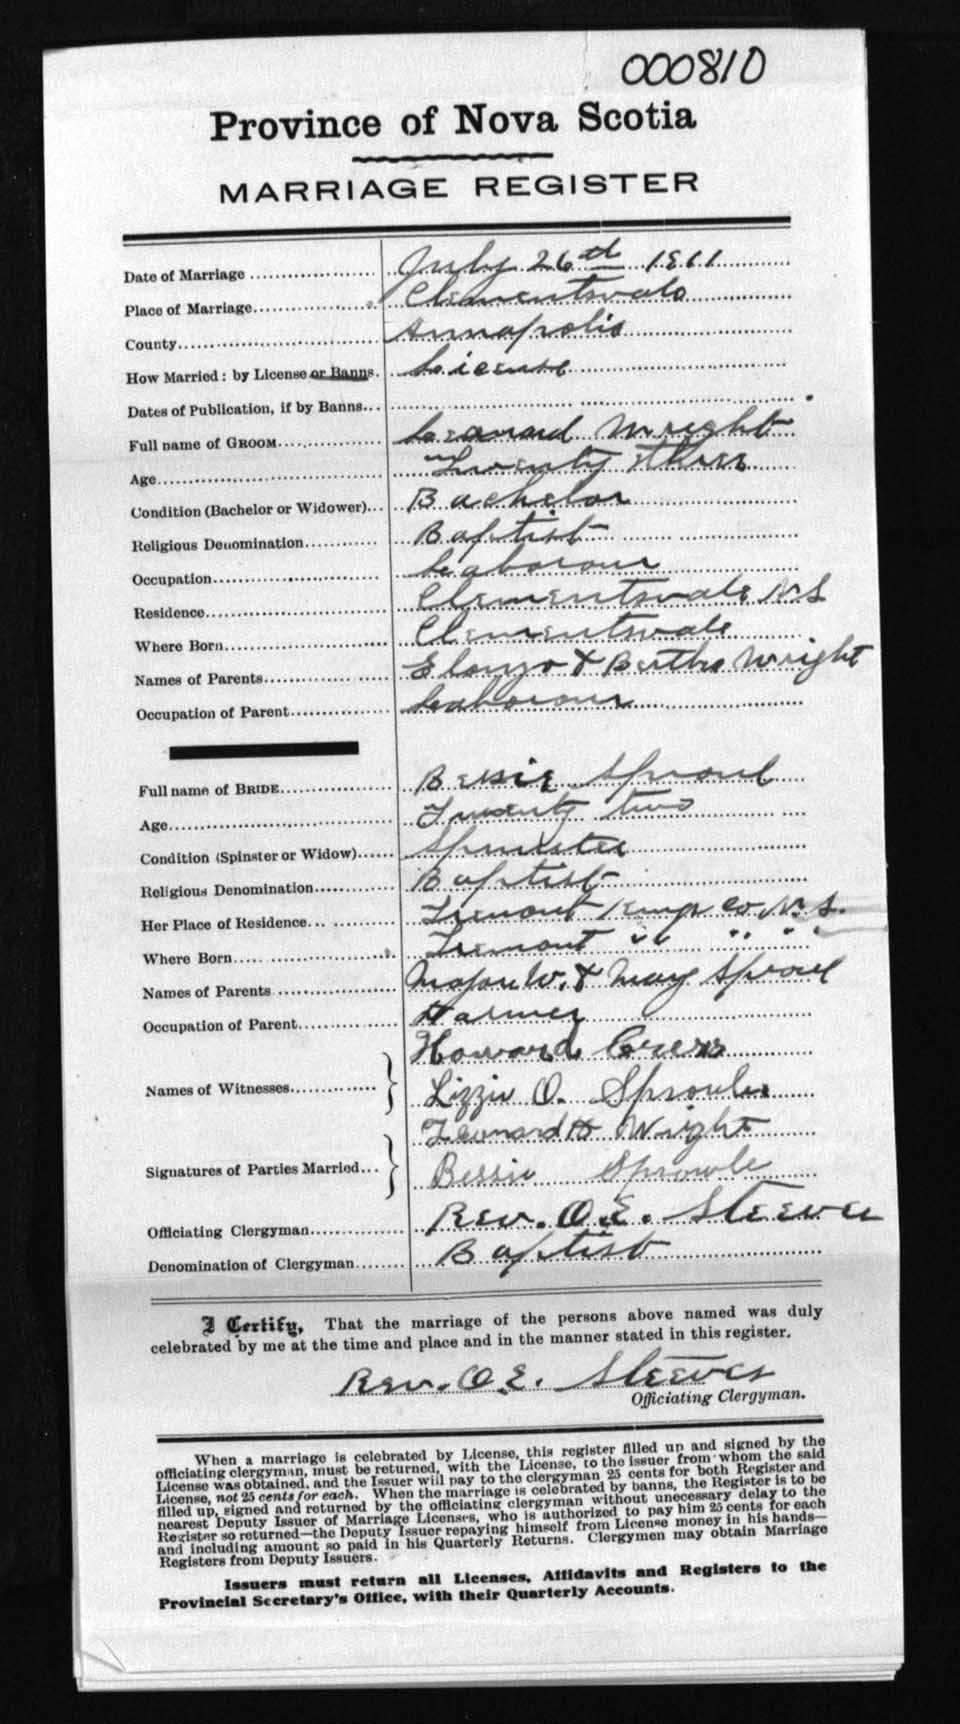 000810
Province of Nova Scotia
MARRIAGE REGISTER
Date of Marriage July 26th 1911
Place of Marriage Clementsvale
County Annapolis
How Married: by License or Banns. License
Dates of Publication, if by Banns
Full name of GROOM Leonard Wright
Age Twenty three
Condition (Bachelor or Widower) Bachelor
Religious Denomination Baptist
Occupation Labourer
Residence Clementsvale N.S
Where Born Clementsvale
Names of Parents Elonzo & Bertha Wright
Occupation of Parent Labourer
Full name of BRIDE Bessie Sproul
Age Twenty two
Condition (Spinster or Widow) Spinster
Religious Denomination Baptist
Her Place of Residence Tremont Kings Co N.S.
Where Born Tremont " " " " "
Names of Parents Major W. & Mary Sproul
Occupation of Parent Farmer
Howard
Names of Witnesses
Lizzie O. Sproule
Leonard H Wright
Signatures of Parties Married
Bessie Sprowle
Officiating Clergyman Rev. O.E. Steeves
Denomination of Clergyman Baptist
I Certify, That the marriage of the persons above named was duly
celebrated by me at the time and place and in the manner stated in this register.
Rev. O.E. Steeves
Officiating Clergyman.
When a marriage is celebrated by License, this register filled up and signed by the
officiating clergyman, must be returned, with the License, to the issuer from whom the said
License was obtained, and the Issuer will pay to the clergyman 25 cents for both Register and
License, not 25 cents for each. When the marriage is celebrated by banns, the Register is to be
filled up, signed and returned by the officiating clergyman without unnecessary delay to the
nearest Deputy Issuer of Marriage Licenses, who is authorized to pay him 25 cents for each
Register so returned—the Deputy Issuer repaying himself from License money in his hands—
and including amount so paid in his Quarterly Returns. Clergymen may obtain Marriage
Registers from Deputy Issuers.
Issuers must return all Licenses, Affidavits and Registers to the
Provincial Secretary's Office, with their Quarterly Accounts.